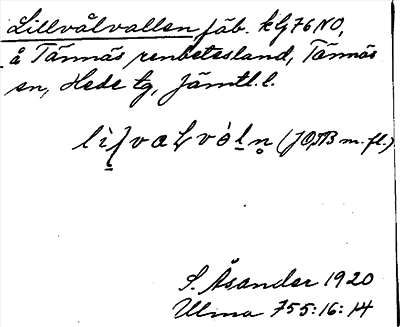 Lillvålvallen fäb. kG76NO,
å Tännäs renbetesland, Tännäs
sn, Hede tg, Jämtl. l.
(JOÄB m. fl.)
S. Åsander 1920
Ulma 755:16:14